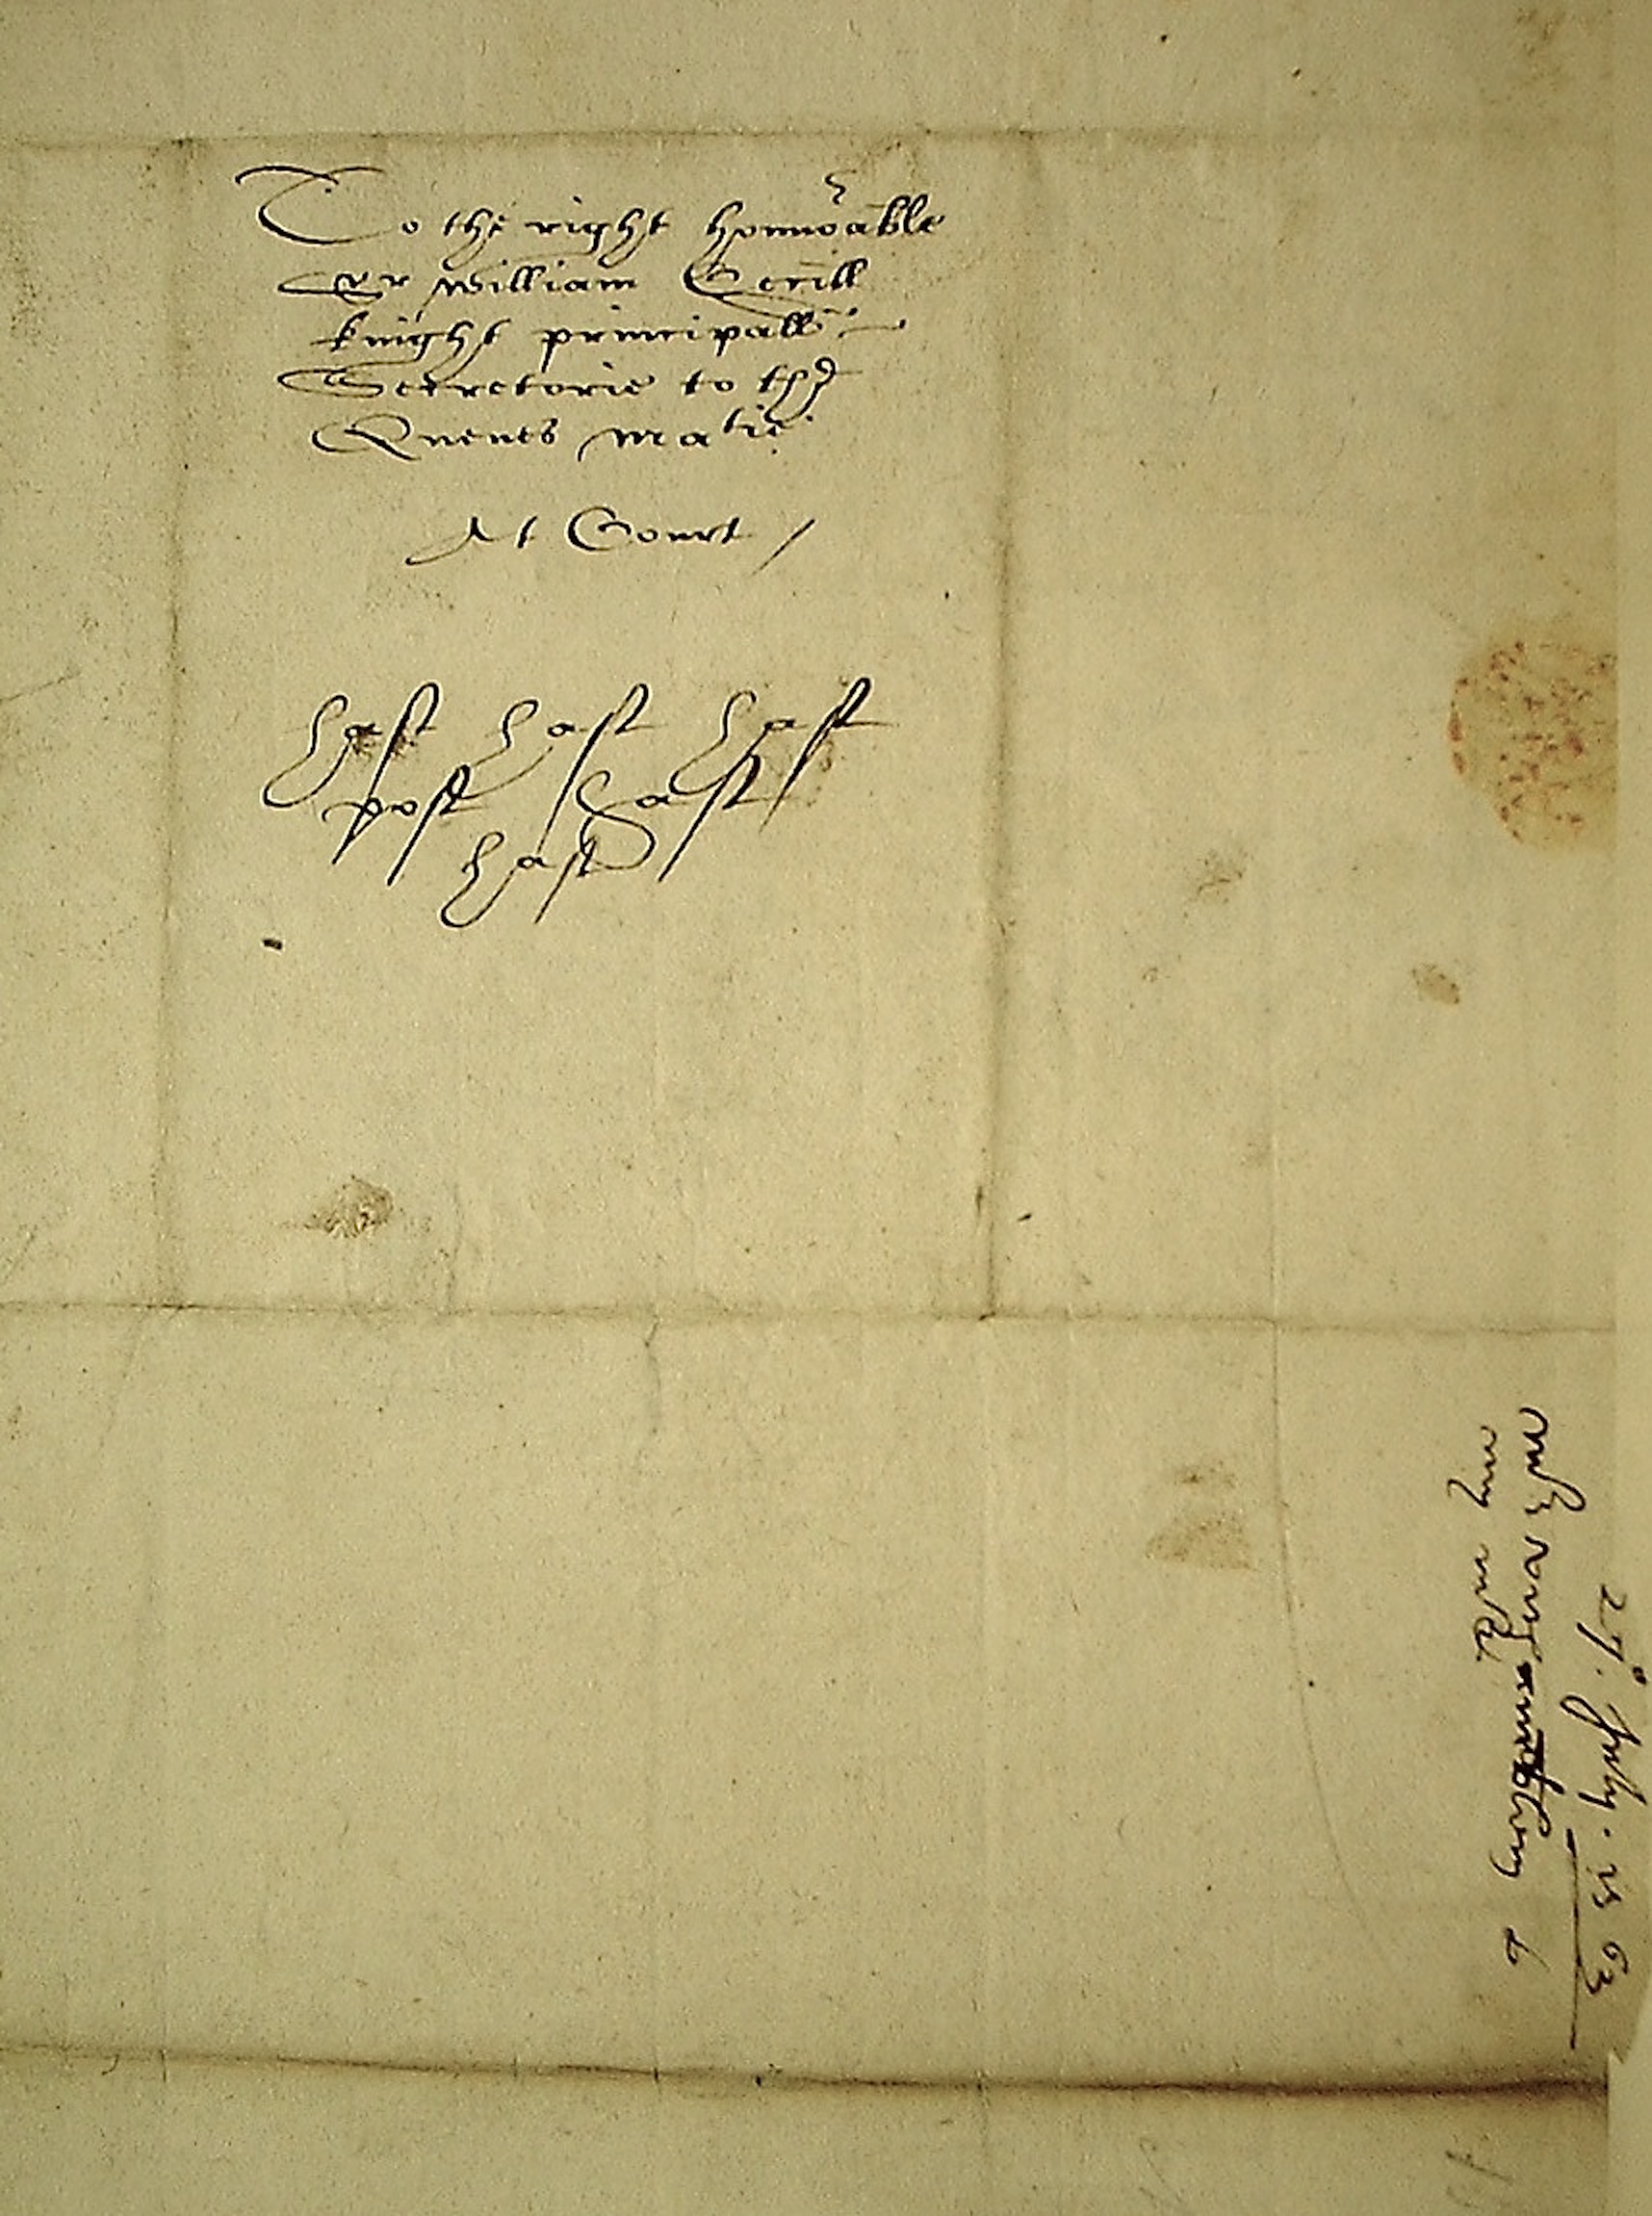 To the right honnorable
Sr william Cecill
knight principall
Secretorie to the
Quenes matie
At Court /
hast hast hast
post hast
hast
27. July. 1563